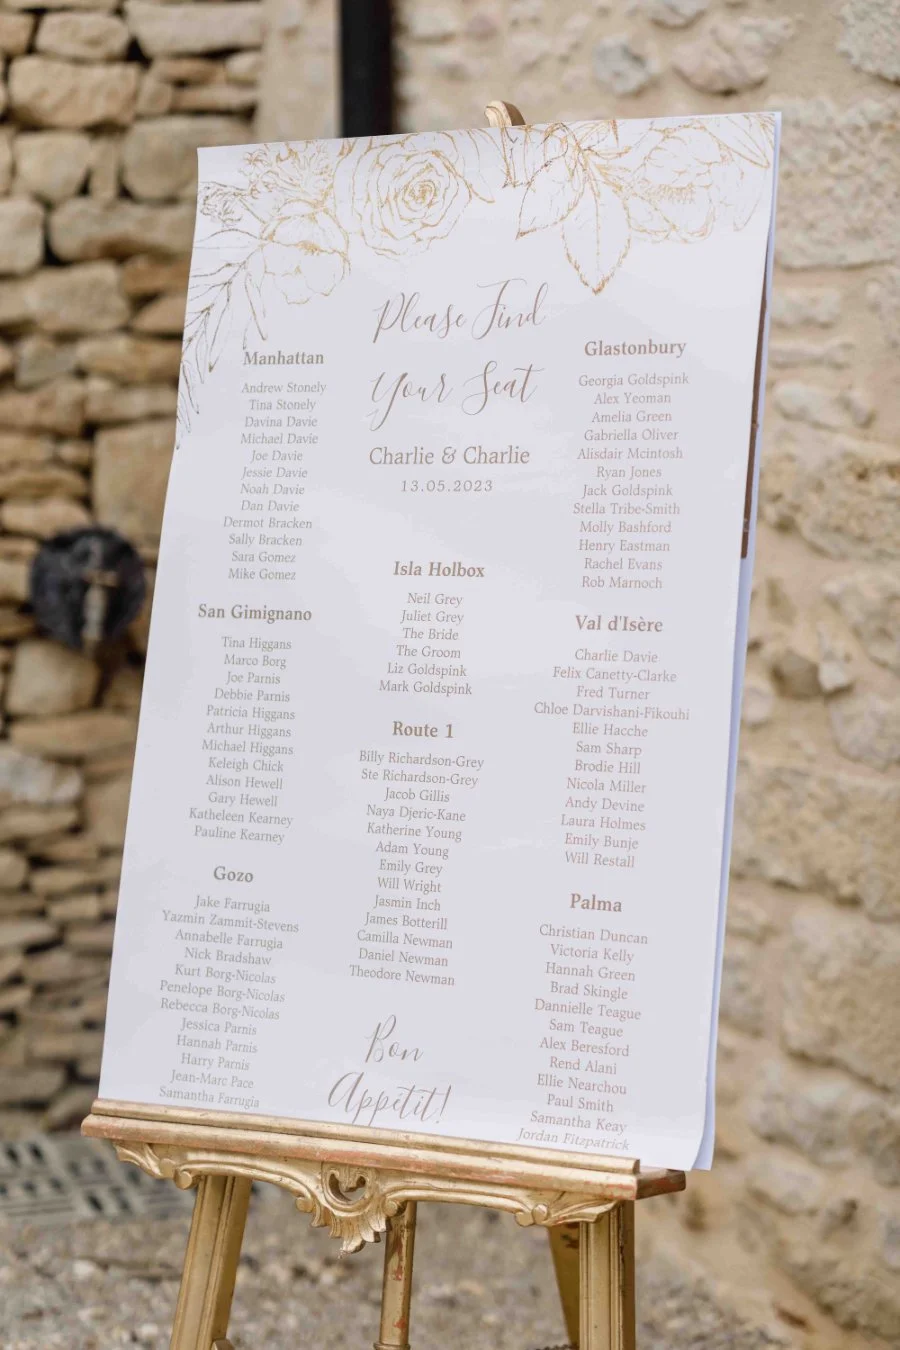 Please Find
Your Seat
Charlie & Charlie
13.05.2023
Manhattan
Andrew Stonely
Tina Stonely
Davina Davie
Michael Davie
Joe Davie
Jessie Davie
Noah Davie
Dan Davie
Dermot Bracken
Sally Bracken
Sara Gomez
Mike Gomez
San Gimignano
Tina Higgans
Marco Borg
Joe Parnis
Debbie Parnis
Patricia Higgans
Arthur Higgans
Michael Higgans
Keleigh Chick
Alison Hewell
Gary Hewell
Katheleen Kearney
Pauline Kearney
Gozo
Jake Farrugia
Yazmin Zammit-Stevens
Annabelle Farrugia
Nick Bradshaw
Kurt Borg-Nicolas
Penelope Borg-Nicolas
Rebecca Borg-Nicolas
Jessica Parnis
Hannah Parnis
Harry Parnis
Jean-Marc Pace
Samantha Farrugia
Isla Holbox
Neil Grey
Juliet Grey
The Bride
The Groom
Liz Goldspink
Mark Goldspink
Route 1
Billy Richardson-Grey
Ste Richardson-Grey
Jacob Gillis
Naya Djeric-Kane
Katherine Young
Adam Young
Emily Grey
Will Wright
Jasmin Inch
James Botterill
Camilla Newman
Daniel Newman
Theodore Newman
Bon
Appétit!
Glastonbury
Georgia Goldspink
Alex Yeoman
Amelia Green
Gabriella Oliver
Alisdair Mcintosh
Ryan Jones
Jack Goldspink
Stella Tribe-Smith
Molly Bashford
Henry Eastman
Rachel Evans
Rob Marnoch
Val d'Isère
Charlie Davie
Felix Canetty-Clarke
Fred Turner
Chloe Darvishani-Fikouhi
Ellie Hacche
Sam Sharp
Brodie Hill
Nicola Miller
Andy Devine
Laura Holmes
Emily Bunje
Will Restall
Palma
Christian Duncan
Victoria Kelly
Hannah Green
Brad Skingle
Dannielle Teague
Sam Teague
Alex Beresford
Rend Alani
Ellie Nearchou
Paul Smith
Samantha Keay
Jordan Fitzpatrick